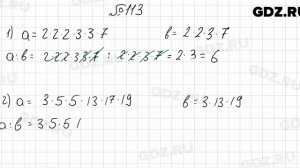 №113
GDZ.RU
1) a = 2·2·2·3·3·7 b = 2·2·3·7
a:b = 2·2·2·3·3·7 : 2·2·3·7 = 2·3 = 6
2) a = 3·5·5·13·17·19 b = 3·13·19
a:b = 3·5·5·1
GDZ.RU